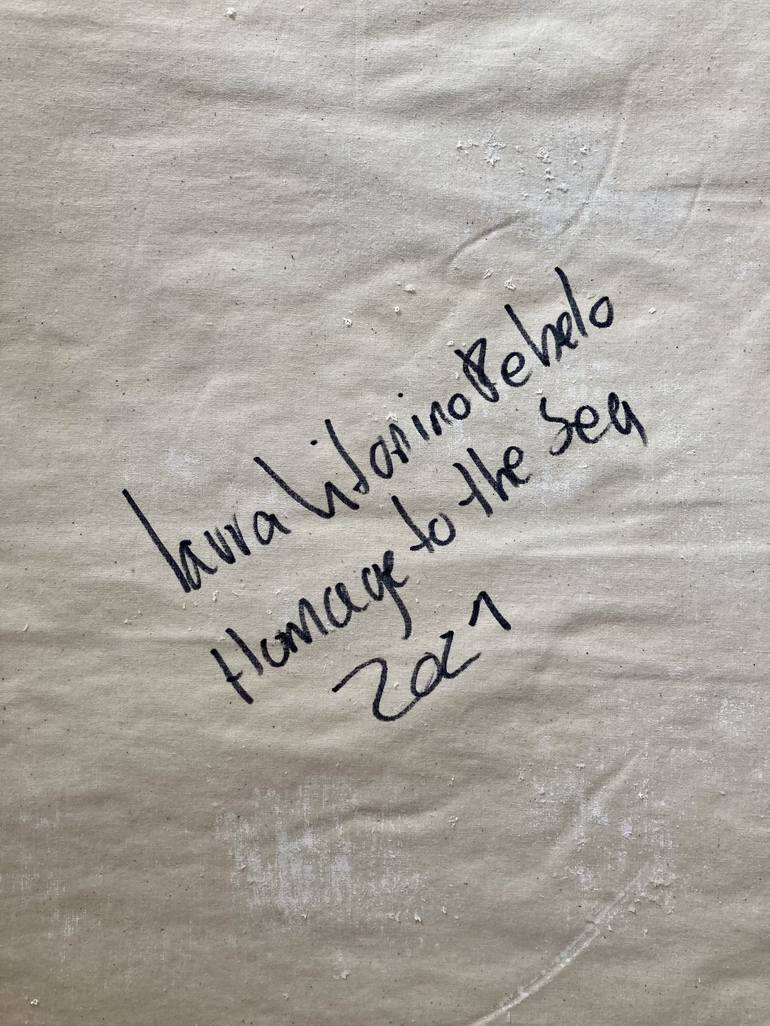 Laura Vitorino Rebelo
Homage to the Sea
2021